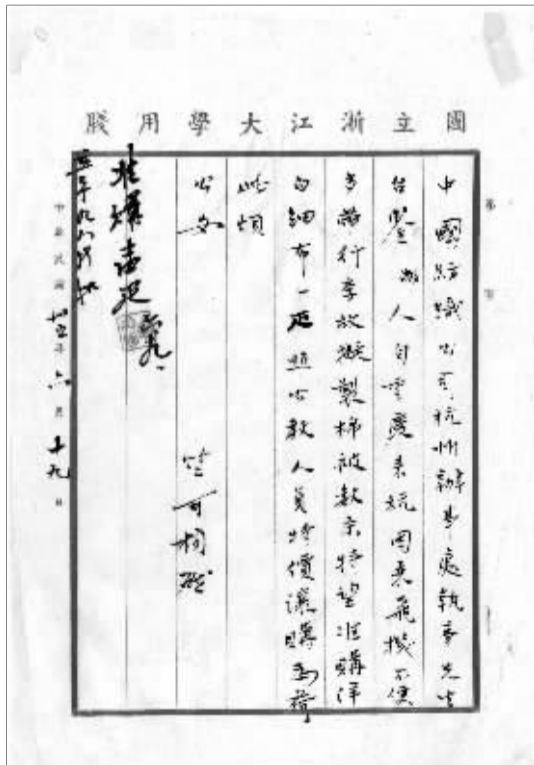 國立浙江大學用牋
中國紡織公司杭州辦事處執事先生
台鑒 敝人自重慶來杭因乘飛機不便
多攜行李故擬製棉被數床特望准購洋
白細布一疋照公教人員特價讓購為荷
此頌
公安
竺可楨啟
准購壹疋
中華民國 卅五年 六月 十九日